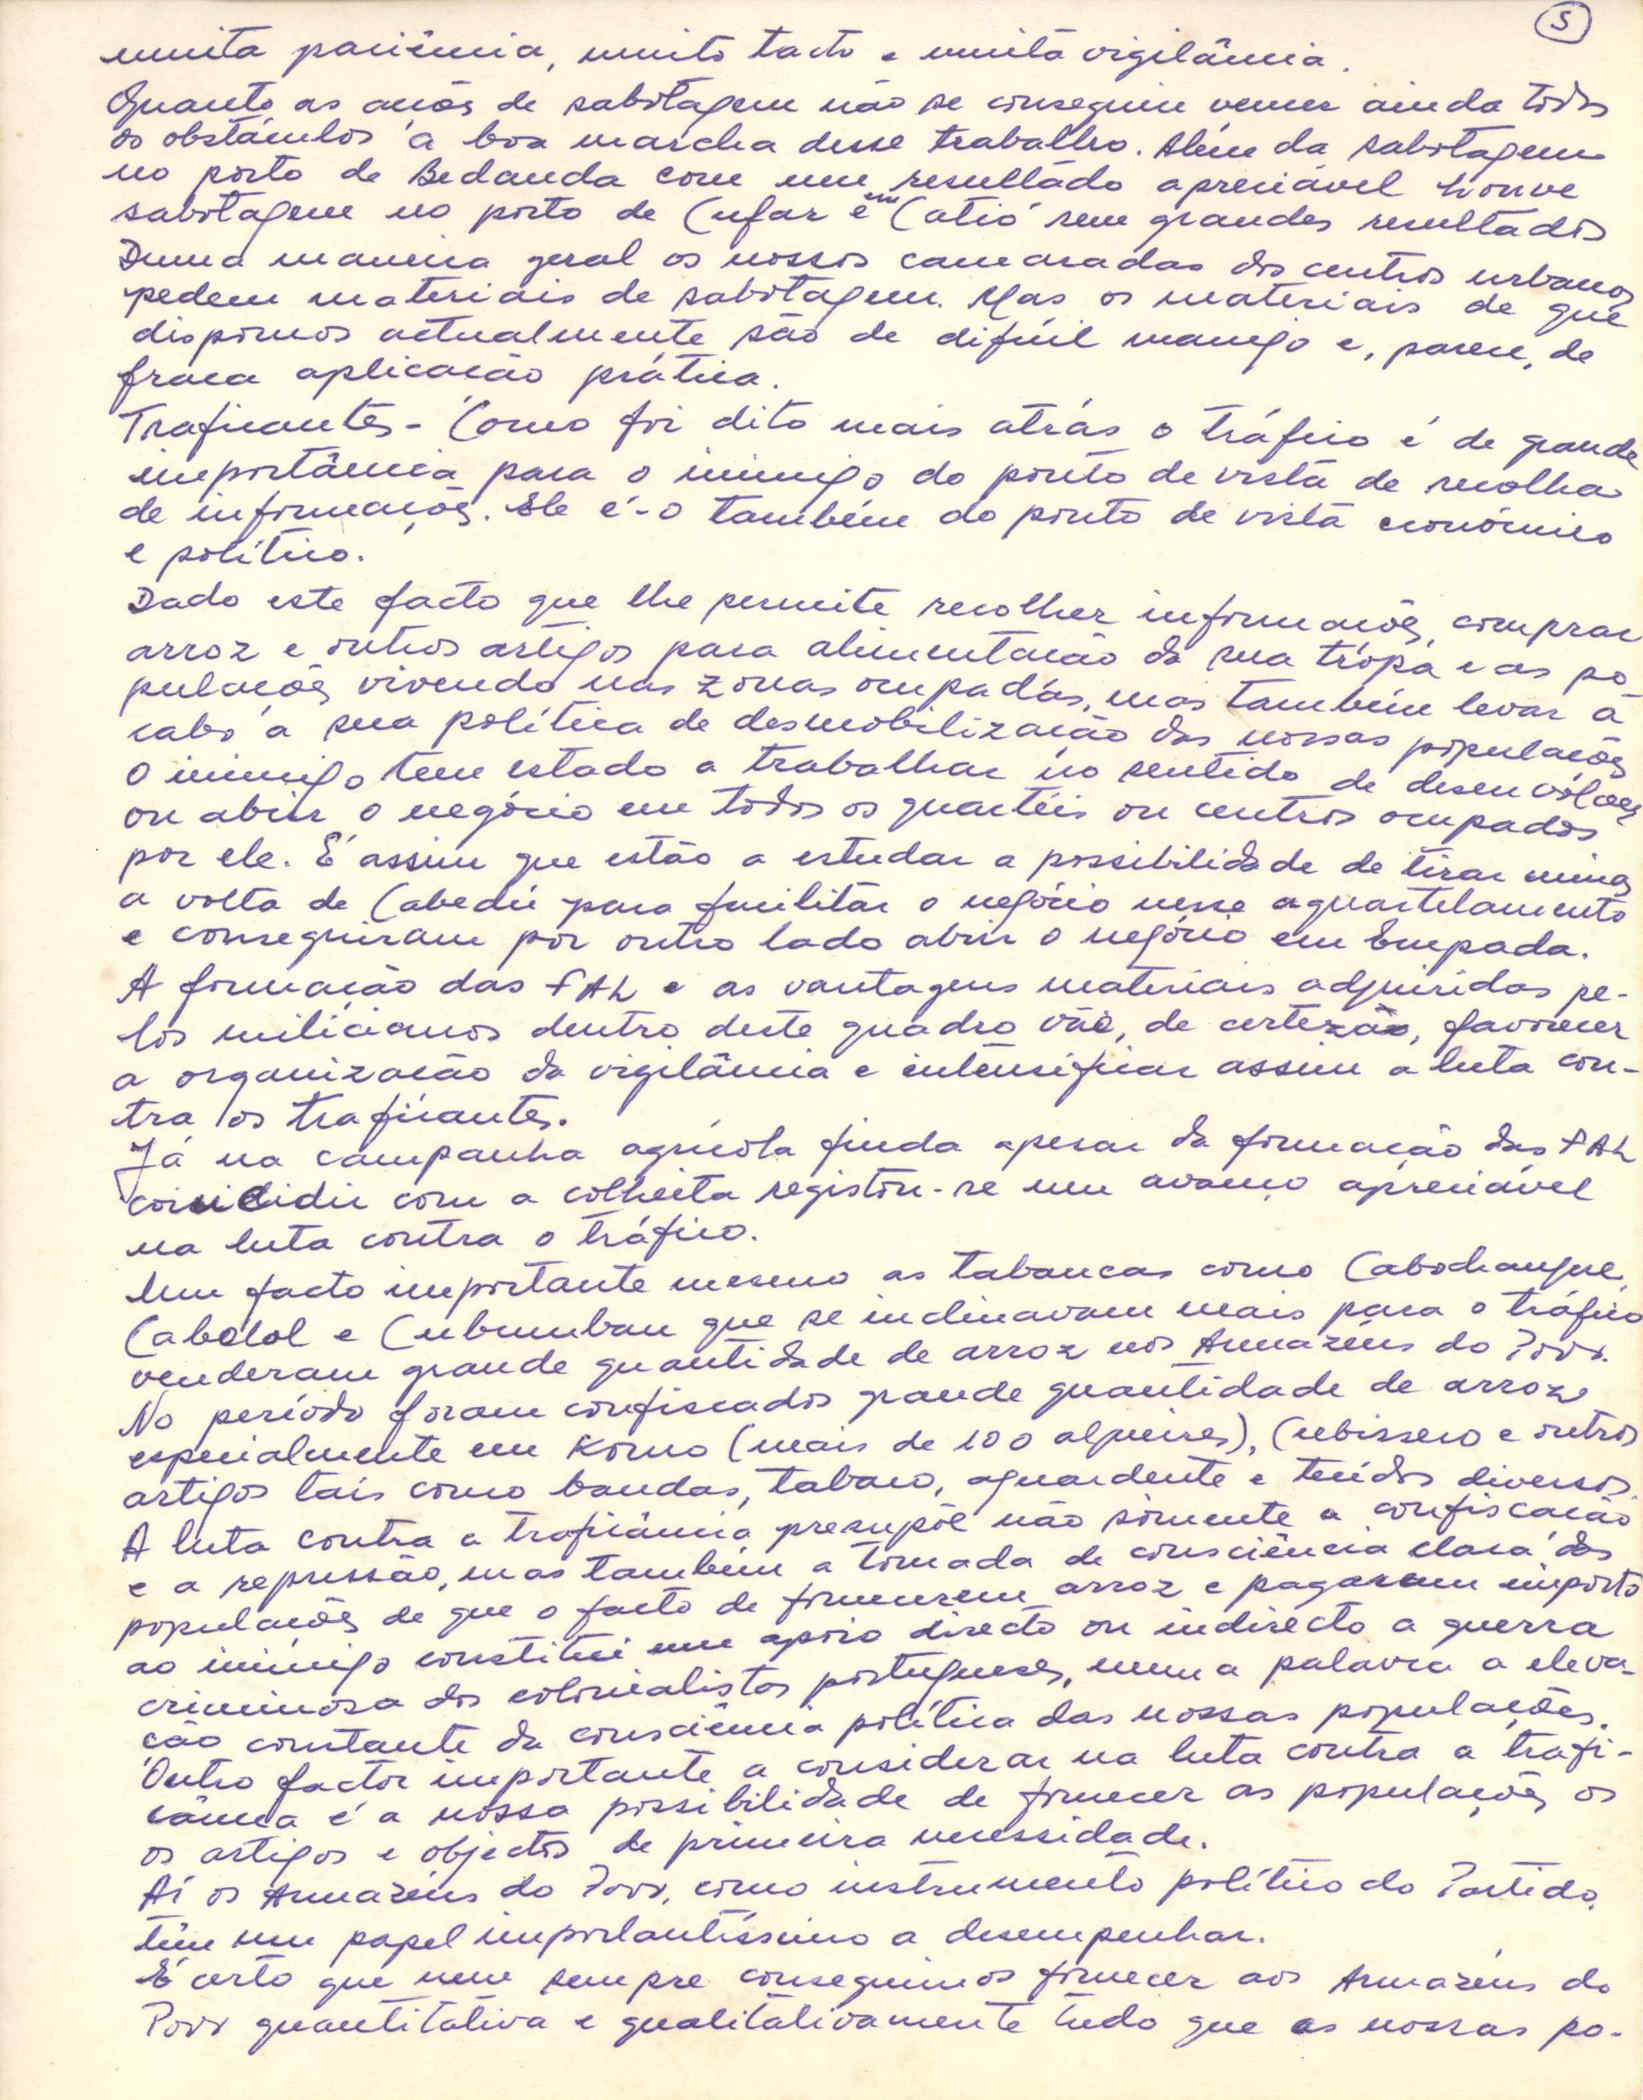 5
muita paciência, muito tacto e muita vigilância.
Quanto as acões de sabotagem não se conseguiu vencer ainda todos
os obstáculos à boa marcha desse trabalho. Além da sabotagem
no porto de Bedanda com um resultado apreciável houve
sabotagem no porto de Cufar e em Catió sem grandes resultados
Duma maneira geral os nossos camaradas dos centros urbanos
pedem materiais de sabotagem. Mas os materiais de que
dispomos actualmente são de difícil manejo e, parece, de
fraca aplicacão prática.
Traficantes - Como foi dito mais atrás o tráfico é de grande
importância para o inimigo do ponto de vista de recolha
de informacões. Ele é-o também do ponto de vista económico
e político.
Dado este facto que lhe permite recolher informacões, comprar
arroz e outros artigos para alimentacão da sua tropa e as po-
pulacões vivendo nas zonas ocupadas, mas também levar a
cabo a sua política de desmobilizacão das nossas populacões
o inimigo tem estado a trabalhar no sentido de desenvolver
ou abrir o negócio em todos os quartéis ou centros ocupados
por ele. É assim que estão a estudar a possibilidade de tirar minas
a volta de Cabedú para facilitar o negócio nesse aquartelamento
e conseguiram por outro lado abrir o negócio em Empada.
A formacão das FAL e as vantagens materiais adquiridas pe-
los milicianos dentro deste quadro vão, de certeza, favorecer
a organizacão da vigilância e intensificar assim a luta con-
tra os traficantes.
Já na campanha agrícola finda apesar da formacão das FAL
coincidir com a colheita registou-se um avanço apreciável
na luta contra o tráfico.
Um facto importante mesmo as tabancas como Cabochanque,
Cabolol e Cubumbam que se inclinavam mais para o tráfico
venderam grande quantidade de arroz nos Armazéns do Povo.
No período foram confiscados grande quantidade de arroz
especialmente em Komo (mais de 100 alqueires), Cubisseco e outros
artigos tais como bandas, tabaco, aguardente e tecidos diversos.
A luta contra a traficância presupõe não sòmente a confiscacão
e a repressão, mas também a tomada de consciência clara das
populacões de que o facto de fornecerem arroz e pagarem imposto
ao inimigo constitui um apoio directo ou indirecto a guerra
criminosa dos colonialistas portugueses, numa palavra a eleva-
cão constante da consciência política das nossas populações.
Outro factor importante a considerar na luta contra a trafi-
cância é a nossa possibilidade de fornecer as populações os
os artigos e objectos de primeira necessidade.
Aí os Armazéns do Povo, como instrumento político do Partido,
têm um papel importantíssimo a desempenhar.
É certo que nem sempre conseguimos fornecer aos Armazéns do
Povo quantitativa e qualitativamente tudo que as nossas po-